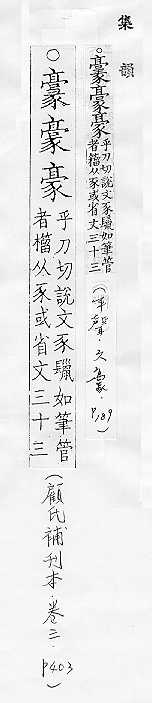 集韻
○豪豪豪
乎刀切說文豕鬣如筆管
者𣝛从豕或省文三十三
(平聲.六豪.P189)
○豪豪豪
乎刀切說文豕鬣如筆管
者从豕或省文三十三
(顧氏補刊本.卷三.P403)